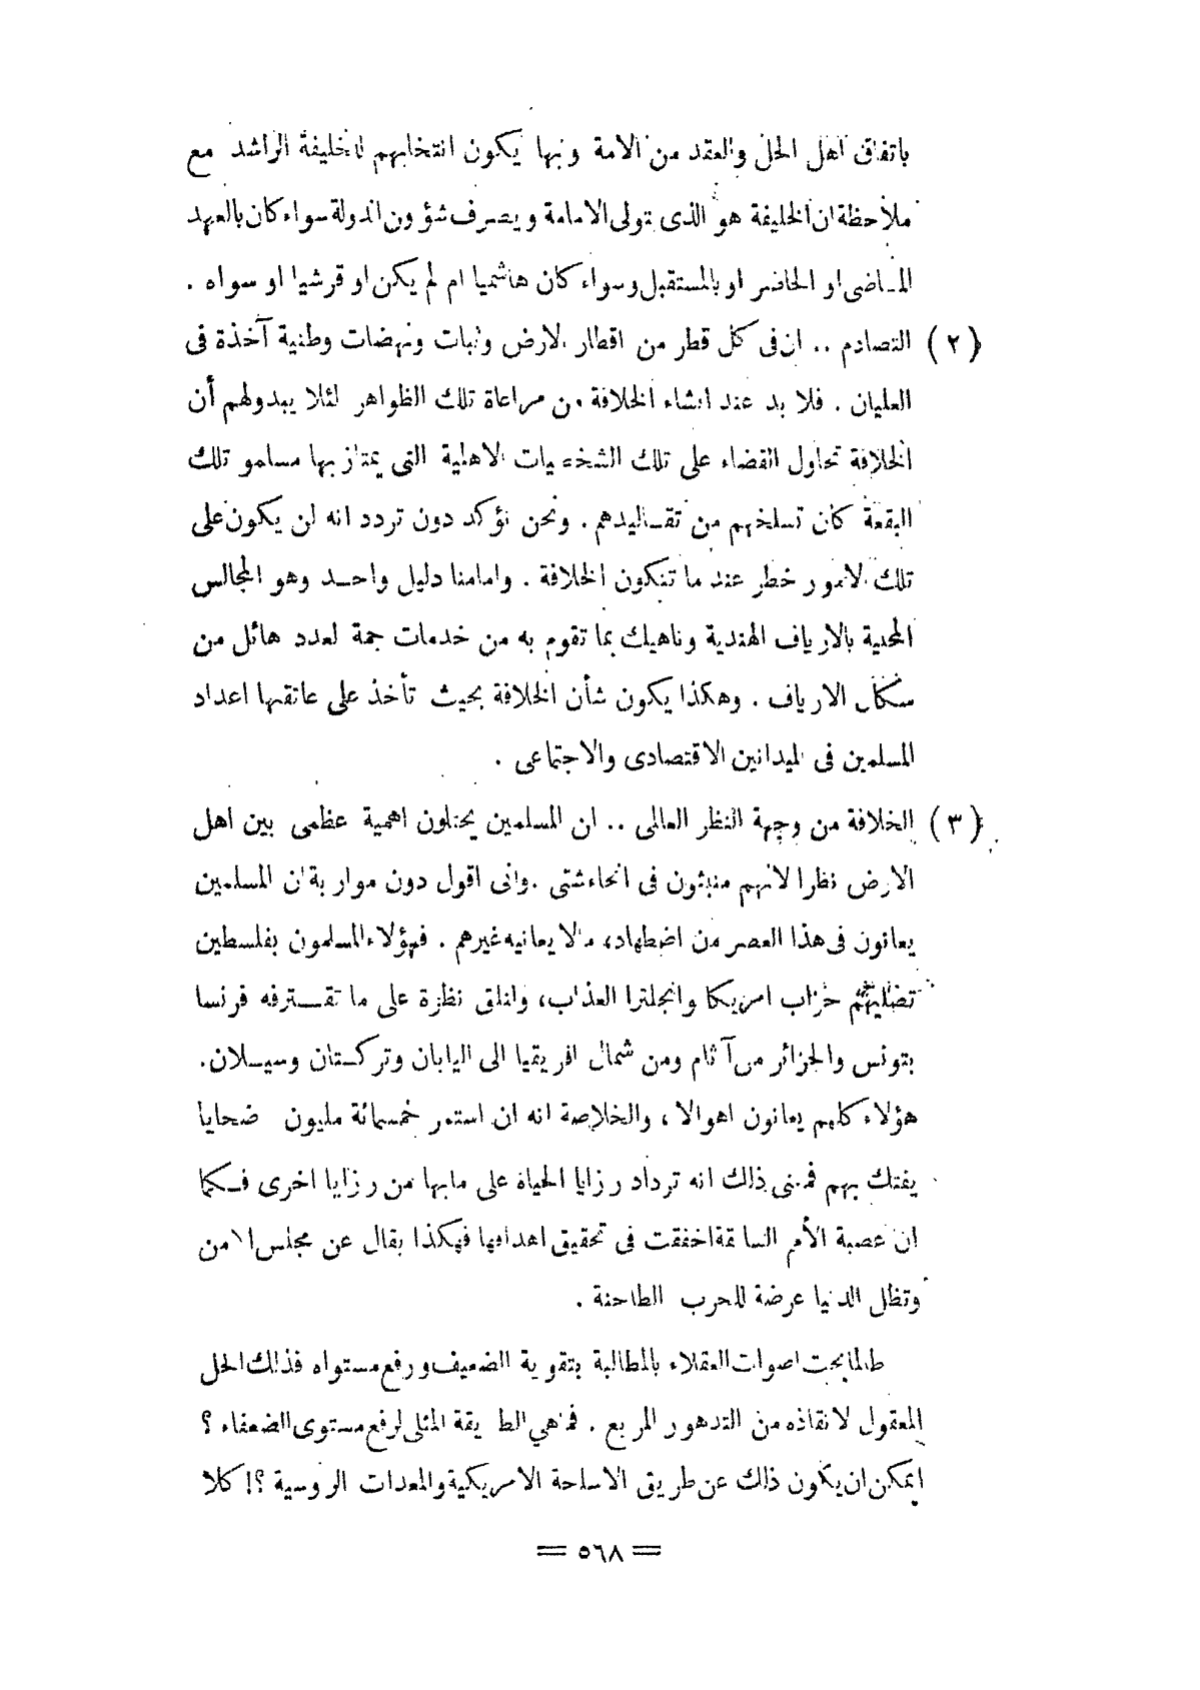 باتفاق اهل الحل والعقد من الامة وبها يكون انتخابهم للخليفة الراشد مع
ملاحظة ان الخليفة هو الذى تولى الامامة ويصرف شؤون الدولة سواء كان بالعهد
المـاضى او الحاضر او بالمستقبل وسواء كان هاشميا ام لم يكن او قرشيا او سواه .
(٢) التصادم .. ان فى كل قطر من اقطار الارض وثبات ونهضات وطنية آخذة فى
الغليان . فلا بد عند انشاء الخلافة من مراعاة تلك الظواهر لئلا يبدو لهم أن
الخلافة تحاول القضاء على تلك الشخصيات الاهلية التى يمتاز بها مسلمو تلك
البقعة كان تسلخهم من تقـاليدهم . ونحن نؤكد دون تردد انه لن يكون على
تلك الامور خطر عند ما تتكون الخلافة . وامامنا دليل واحـد وهو المجالس
المحلية بالارياف الهندية وناهيك بما تقوم به من خدمات جمة لعدد هائل من
سكان الارياف . وهكذا يكون شأن الخلافة بحيث تأخذ على عاتقها اعداد
المسلمين فى الميدانين الاقتصادى والاجتماعى .
(٣) الخلافة من وجهة النظر العالمى .. ان المسلمين يحتلون اهمية عظمى بين اهل
الارض نظرا لانهم منبثون فى انحاء شتى . وانى اقول دون مواربة ان المسلمين
يعانون فى هذا العصر من اضطهاد، ما لا يعانيه غيرهم . فهؤلاء المسلمون بفلسطين
تصليهم حراب امريكا وانجلترا العذاب، ولنلق نظرة على ما تقـترفه فرنسا
بتونس والجزائر من آثام ومن شمال افريقيا الى اليابان وتركـستان وسيـلان.
هؤلاء كلهم يعانون اهوالا ، والخلاصة انه ان استمر خمسمائة مليون ضحايا
يفتك بهم فمعنى ذلك انه تزداد رزايا الحياة على ما بها من رزايا اخرى فـكما
ان عصبة الأمم السابقة اخفقت فى تحقيق اهدافها فهكذا يقال عن مجلس الامن
وتظل الدنيا عرضة للحرب الطاحنة .
طالما بحت اصوات العقلاء بالمطالبة بتقوية الضعيف ورفع مستواه فذلك الحل
المعقول لانقاذه من التدهور المريع . فما هي الطريقة المثلى لرفع مستوى الضعفاء ؟
ايمكن ان يكون ذلك عن طريق الاسلحة الامريكية والمعدات الروسية ؟! كلا
= ٥٦٨ =